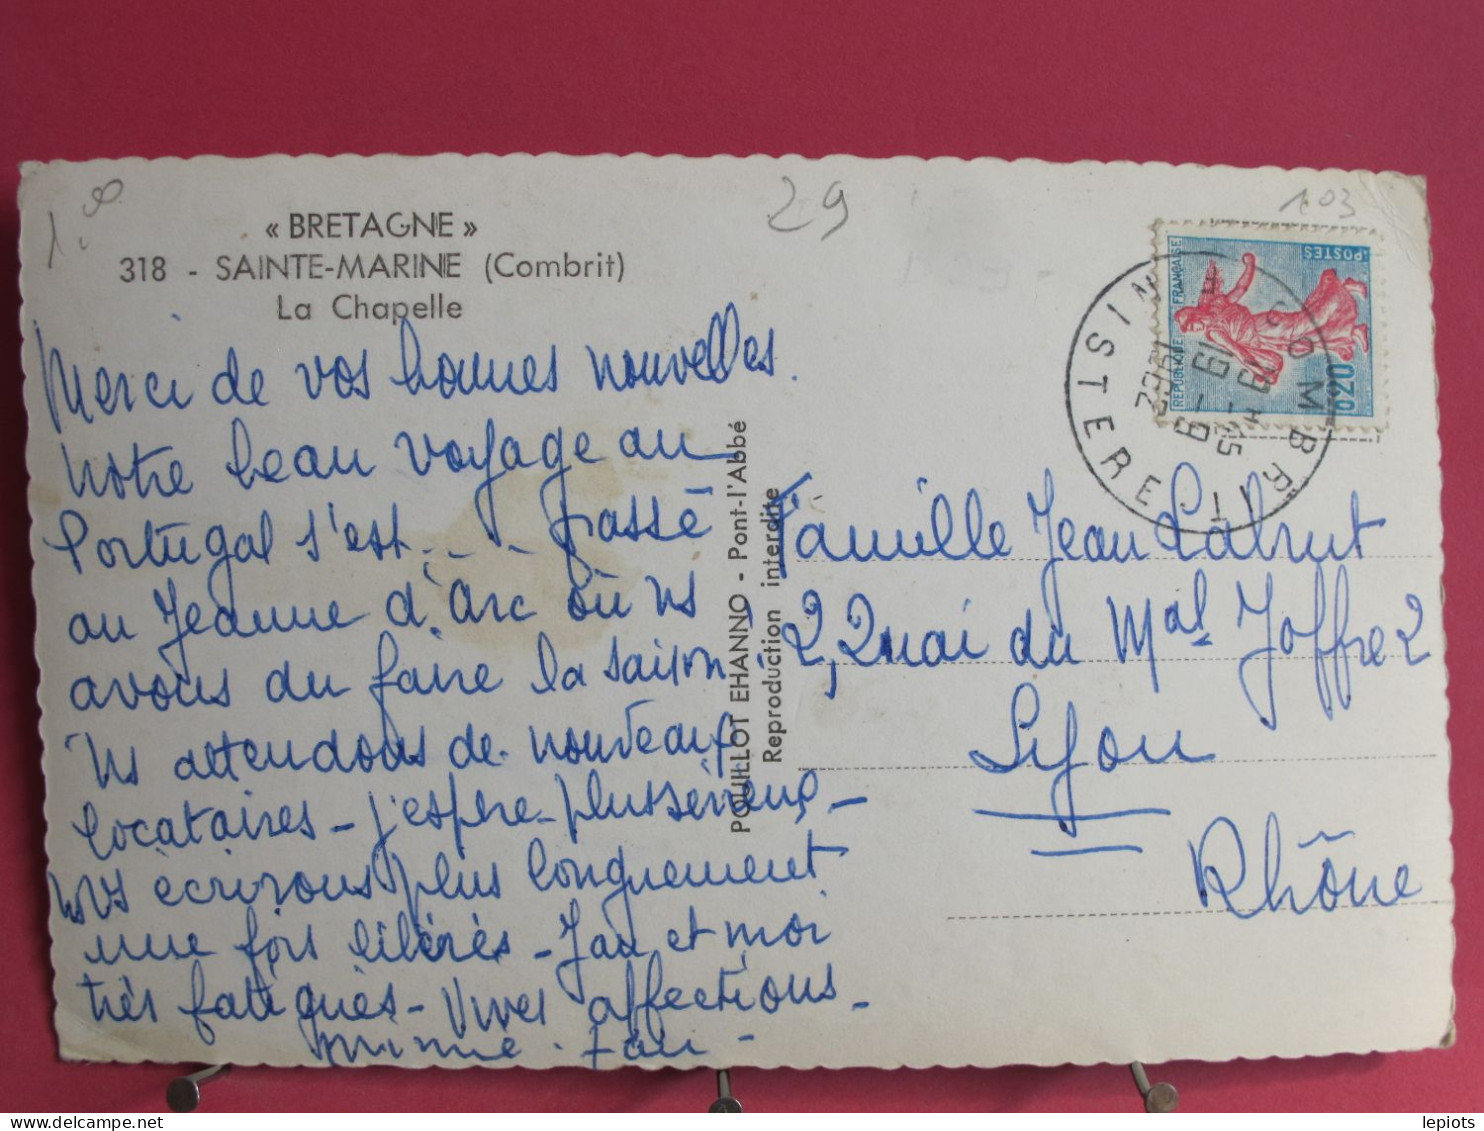 1.
29
1.03
« BRETAGNE »
318 - SAINTE-MARINE (Combrit)
La Chapelle
Merci de vos bonnes nouvelles.
Notre beau voyage au
Portugal s'est . - . passé
au Jeanne d'Arc où ns
avons du faire la saison.
Ns attendons de nouveaux
locataires - j'espère plus sérieux -
vs écrirons plus longuement
une fois libérés - Jan et moi
très fatigués - Vives affections -
Mimie . Jan -
POUILLOT EHANNO - Pont-l'Abbé
Reproduction interdite
REPUBLIQUE FRANÇAISE
POSTES
0,20
COMBRIT
FINISTERE
Famille Jean Labrut
2, Quai du Mal Joffre 2
Lyon
Rhône
lepiots